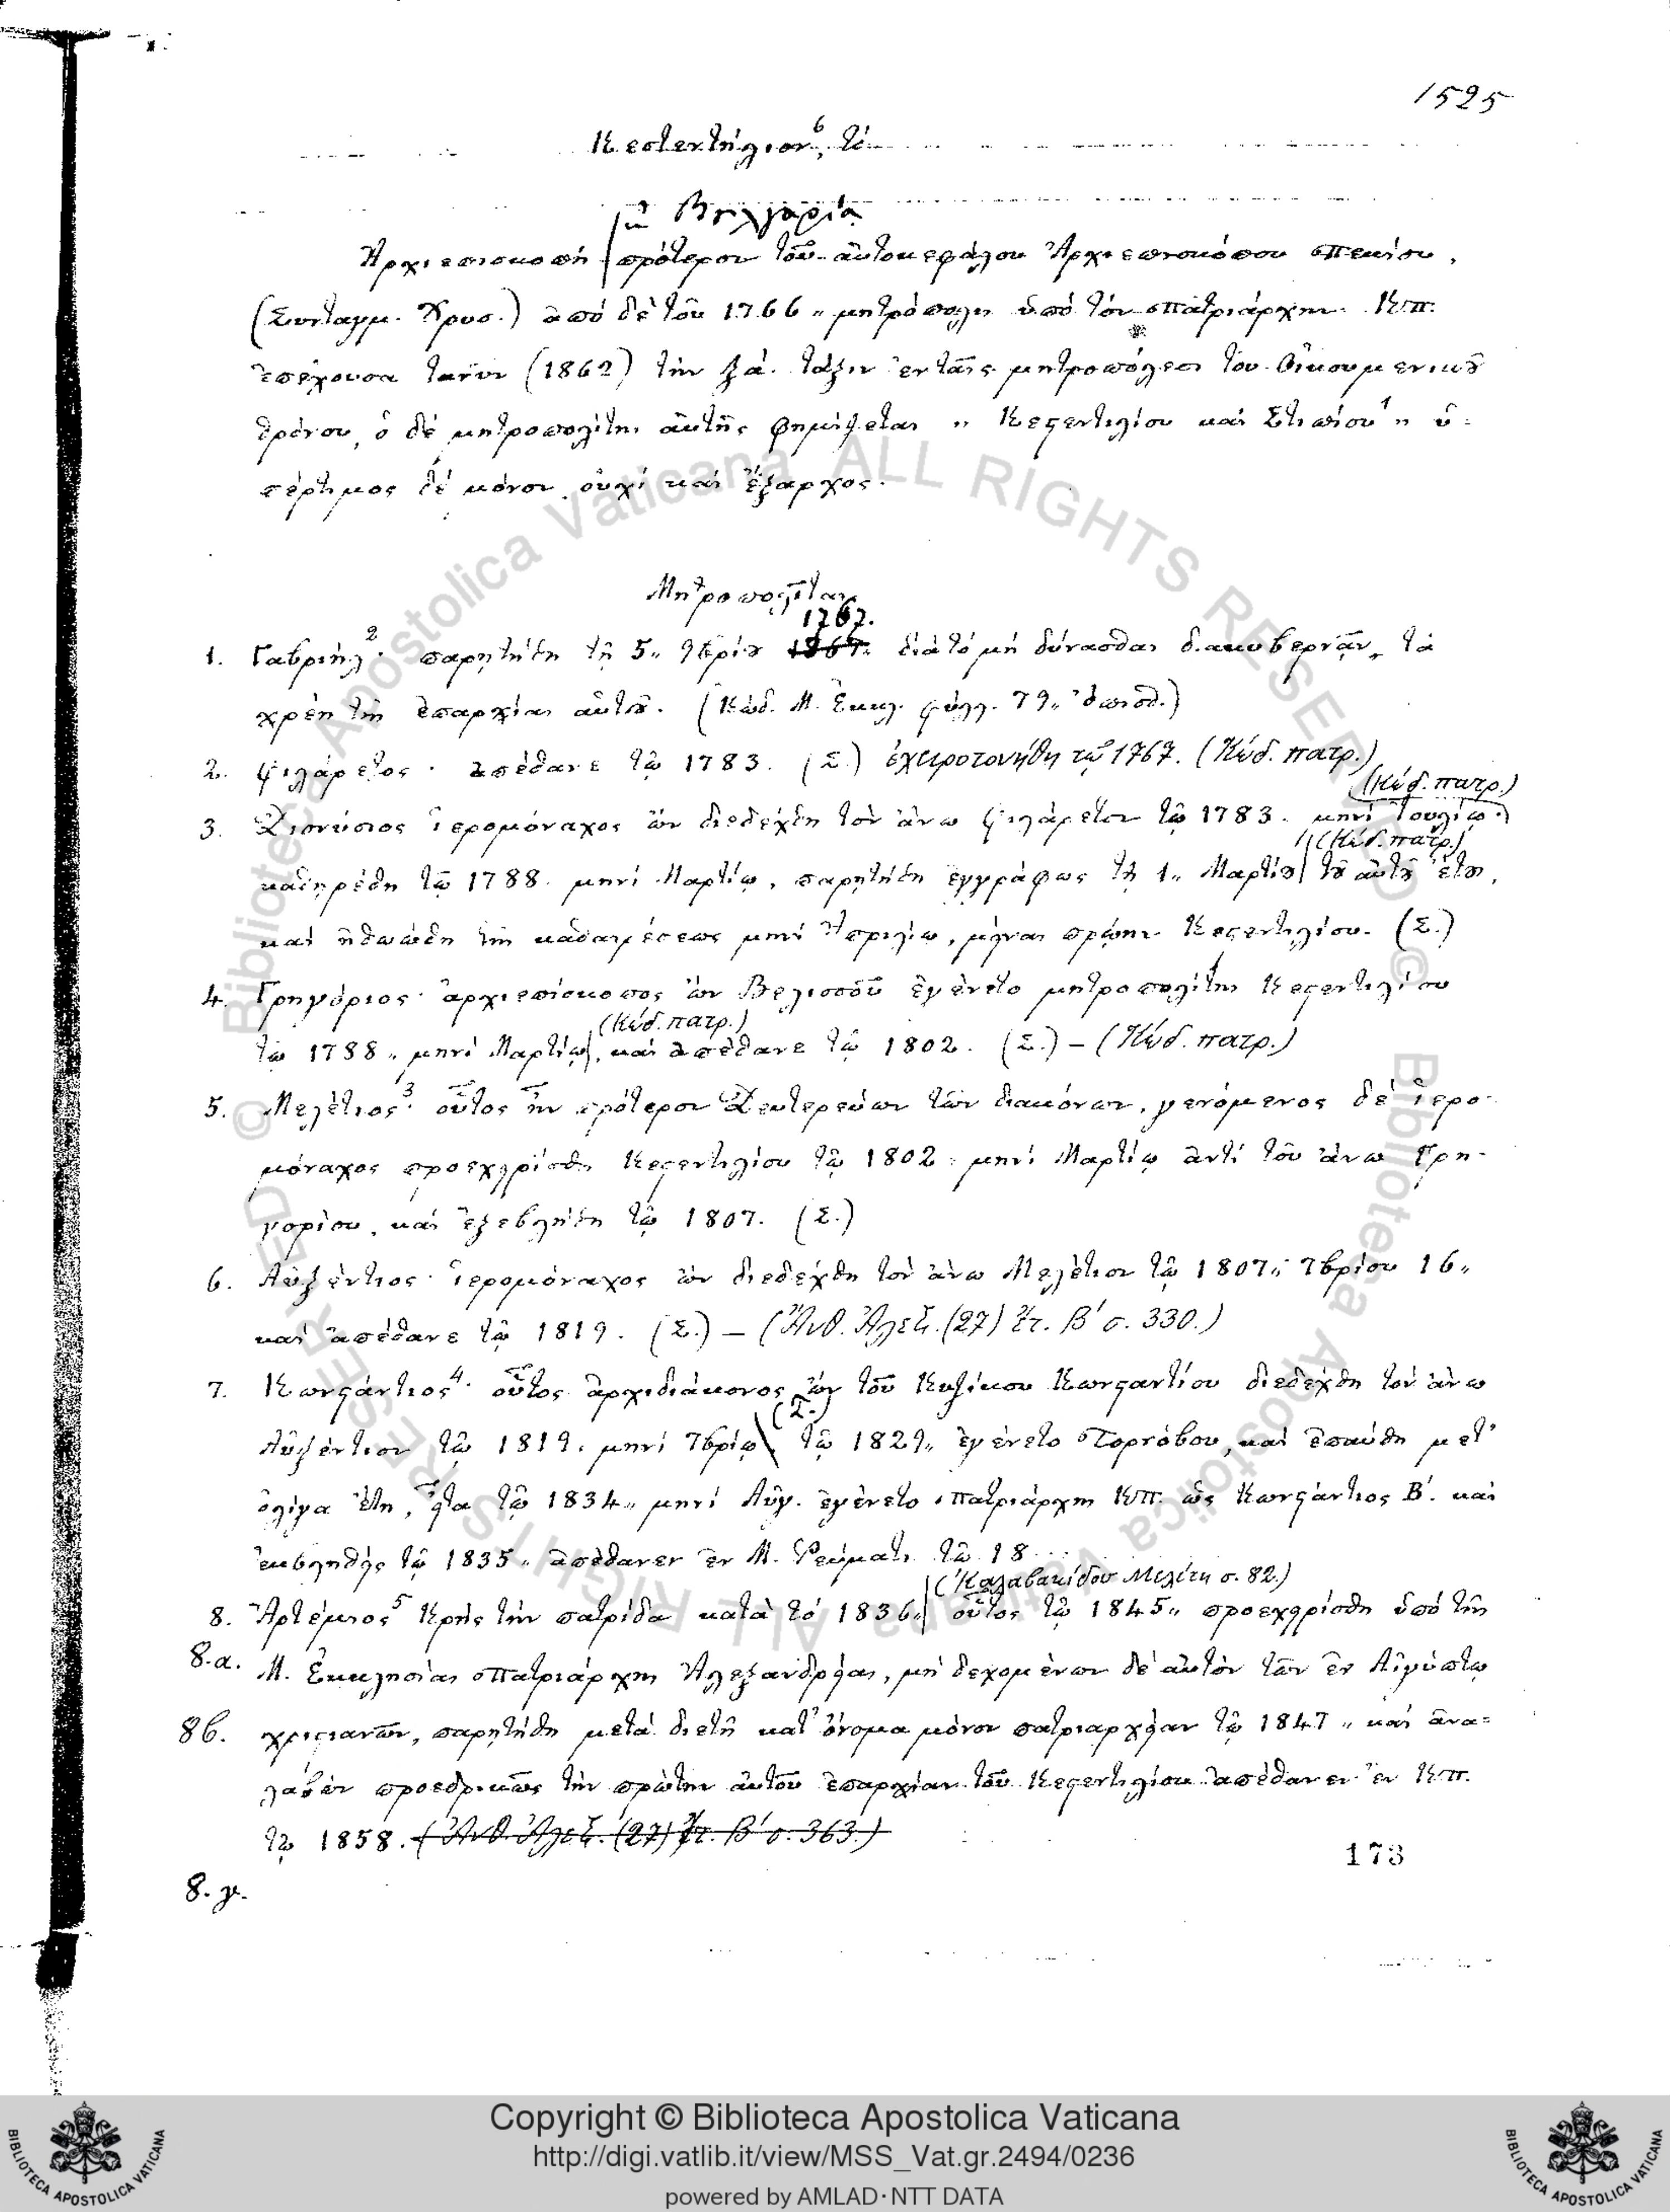 1525
Κεστεντήλιον⁶, τό
ἐν Βουλγαρίᾳ
Ἀρχιεπισκοπή πρότερον τοῦ αὐτοκεφάλου Ἀρχιεπισκόπου Πεκίου,
(Συνταγμ. Χρυσ.) ἀπό δέ τοῦ 1766 „ μητρόπολις ὑπό τόν πατριάρχην Κπ.
ἐπέχουσα τανῦν (1862) τήν ξά. τάξιν ἐν ταῖς μητροπόλεσι τοῦ Οἰκουμενικοῦ
θρόνου, ὁ δέ μητροπολίτης αὐτῆς φημίζεται „ Κεστεντηλίου καί Στιπίου¹ „ ὑ=
πέρτιμος δέ μόνον οὐχί καί ἔξαρχος.
Μητροπολῖται
1767.
1. Γαβριήλ². παρῃτήθη τῇ 5„ 9βρίου 1867. διά τό μή δύνασθαι διακυβερνᾷν τά
χρέη τῆς ἐπαρχίας αὐτοῦ. (Κώδ. Μ. Ἐκκλ. φύλλ. 79„ ὄπισθ.)
2. Φιλάρετος. ἀπέθανε τῷ 1783. (Σ.) ἐχειροτονήθη τῷ 1767. (Κώδ. πατρ.)
(Κώδ. πατρ.)
3. Διονύσιος ἱερομόναχος ὤν διεδέχθη τόν ἄνω Φιλάρετον τῷ 1783. μηνί Ἰουλίῳ
(Κώδ. πατρ.)
καθῃρέθη τῷ 1788. μηνί Μαρτίῳ, παρῃτήθη ἐγγράφως τῇ 1„ Μαρτίου τοῦ αὐτοῦ ἔτους,
καί ἠθωώθη τῆς καθαιρέσεως μηνί Ἀπριλίῳ, μείνας πρώην Κεστεντηλίου. (Σ.)
4. Γρηγόριος. ἀρχιεπίσκοπος ὤν Βελισσοῦ ἐγένετο μητροπολίτης Κεστεντηλίου
(Κώδ. πατρ.)
τῷ 1788„ μηνί Μαρτίῳ, καί ἀπέθανε τῷ 1802. (Σ.) – (Κώδ. πατρ.)
5. Μελέτιος³. οὗτος ἦν πρότερον Δευτερεύων τῶν διακόνων, γενόμενος δέ ἱερο-
μόναχος προεχειρίσθη Κεστεντηλίου τῷ 1802 „ μηνί Μαρτίῳ ἀντί τοῦ ἄνω Γρη-
γορίου, καί ἐξεβλήθη τῷ 1807. (Σ.)
6. Αὐξέντιος. ἱερομόναχος ὤν διεδέχθη τόν ἄνω Μελέτιον τῷ 1807„ 7βρίου 16„
καί ἀπέθανε τῷ 1819. (Σ.) – (Ἄνθ. Ἀλεξ. (27) Ἔτ. Β΄ σ. 330.)
7. Κωνστάντιος⁴. οὗτος ἀρχιδιάκονος ὤν τοῦ Κυζίκου Κωνσταντίου διεδέχθη τόν ἄνω
(Σ.)
Αὐξέντιον τῷ 1819. μηνί 7βρίῳ τῷ 1829„ ἐγένετο Τορνόβου, καί ἐπαύθη μετ'
ὀλίγα ἔτη, εἶτα τῷ 1834„ μηνί Αὐγ. ἐγένετο πατριάρχης Κπ. ὡς Κωνστάντιος Β΄. καί
ἐκβληθείς τῷ 1835„ ἀπέθανεν ἐν Μ. Ῥεύματι τῷ 18...
(Καλαβακίδου Μελέτη σ. 82.)
8. Ἀρτέμιος⁵ Κρής τήν πατρίδα κατά τό 1836„ οὗτος τῷ 1845„ προεχειρίσθη ὑπό τῆς
8.α. Μ. Ἐκκλησίας πατριάρχης Ἀλεξανδρείας, μή δεχομένων δέ αὐτόν τῶν ἐν Αἰγύπτῳ
8β. χριστιανῶν, παρῃτήθη μετά διετῆ κατ' ὄνομα μόνον πατριαρχείαν τῷ 1847 „ καί ἀνα=
λαβών προεδρικῶς τήν πρώτην αὐτοῦ ἐπαρχίαν τοῦ Κεστεντηλίου ἀπέθανεν ἐν Κπ.
τῷ 1858. (Ἄνθ. Ἀλεξ. (27) Ἔτ. Β΄ σ. 363.)
173
8.γ.
© Biblioteca Apostolica Vaticana ALL RIGHTS RESERVED
© Biblioteca Apostolica Vaticana ALL RIGHTS RESERVED
Copyright © Biblioteca Apostolica Vaticana
http://digi.vatlib.it/view/MSS_Vat.gr.2494/0236
powered by AMLAD·NTT DATA
BIBLIOTECA APOSTOLICA VATICANA
BIBLIOTECA APOSTOLICA VATICANA